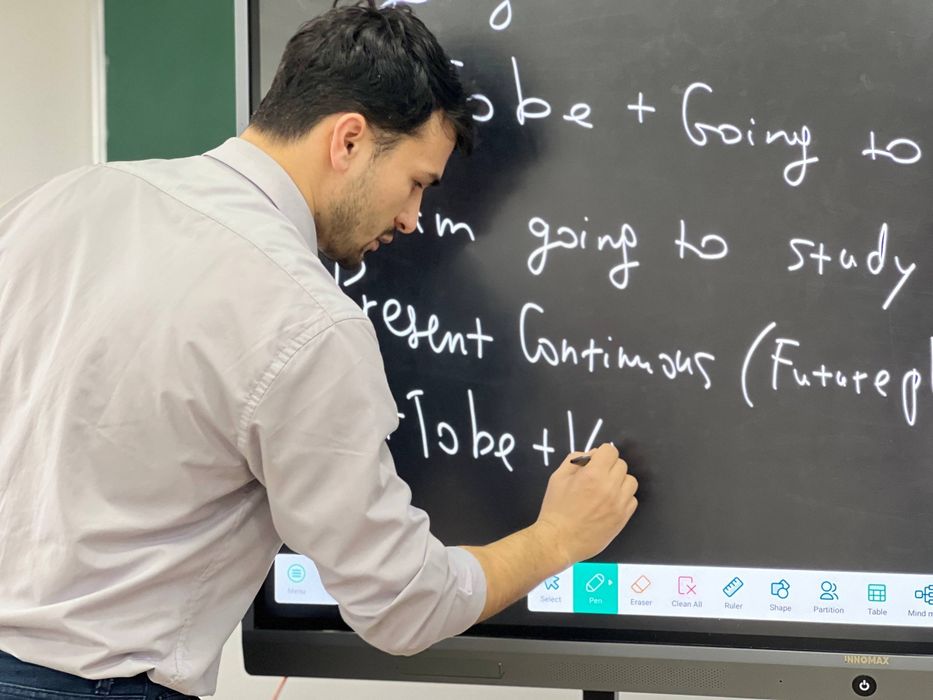 be + Going to
am going to study
Present Continuous (Future pl
+ To be + V
Menu
Select Pen Eraser Clean All Ruler Shape Partition Table Mind m
INNOMAX